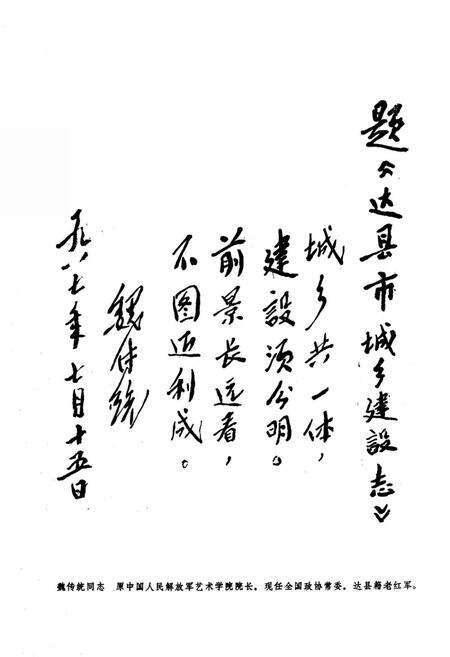 题《达县市城乡建设志》
城乡共一体，
建設须分明。
前景长远看，
不图近利成。
魏传统
一九八七年七月十五日
魏传统同志　原中国人民解放军艺术学院院长。现任全国政协常委。达县籍老红军。